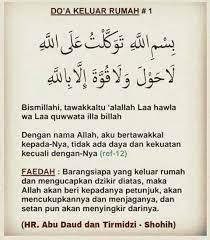 DO'A KELUAR RUMAH # 1
بِسْمِ اللَّهِ تَوَكَّلْتُ عَلَى اللَّهِ
لَا حَوْلَ وَلَا قُوَّةَ إِلَّا بِاللَّهِ
Bismillahi, tawakkaltu 'alallah Laa hawla
wa Laa quwwata illa billah
Dengan nama Allah, aku bertawakkal
kepada-Nya, tidak ada daya dan kekuatan
kecuali dengan-Nya (ref-12)
FAEDAH : Barangsiapa yang keluar rumah
dan mengucapkan dzikir diatas, maka
Allah akan beri kepadanya petunjuk, akan
mencukupkannya dan menjaganya, dan
setan pun akan menyingkir darinya.
(HR. Abu Daud dan Tirmidzi - Shohih)